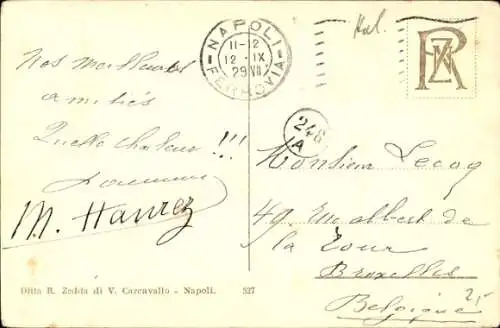 Nos meilleures
amitiés
Quelle chaleur !!!
M. Hanrez
Ditta R. Zedda di V. Carcavallo - Napoli. 527
NAPOLI
11-12
12 · IX
29 VII
FERROVIA
Ital.
RZ
248
A
Monsieur Lecoq
49. Rue Albert de
la Tour
Bruxelles
Belgique
2,-